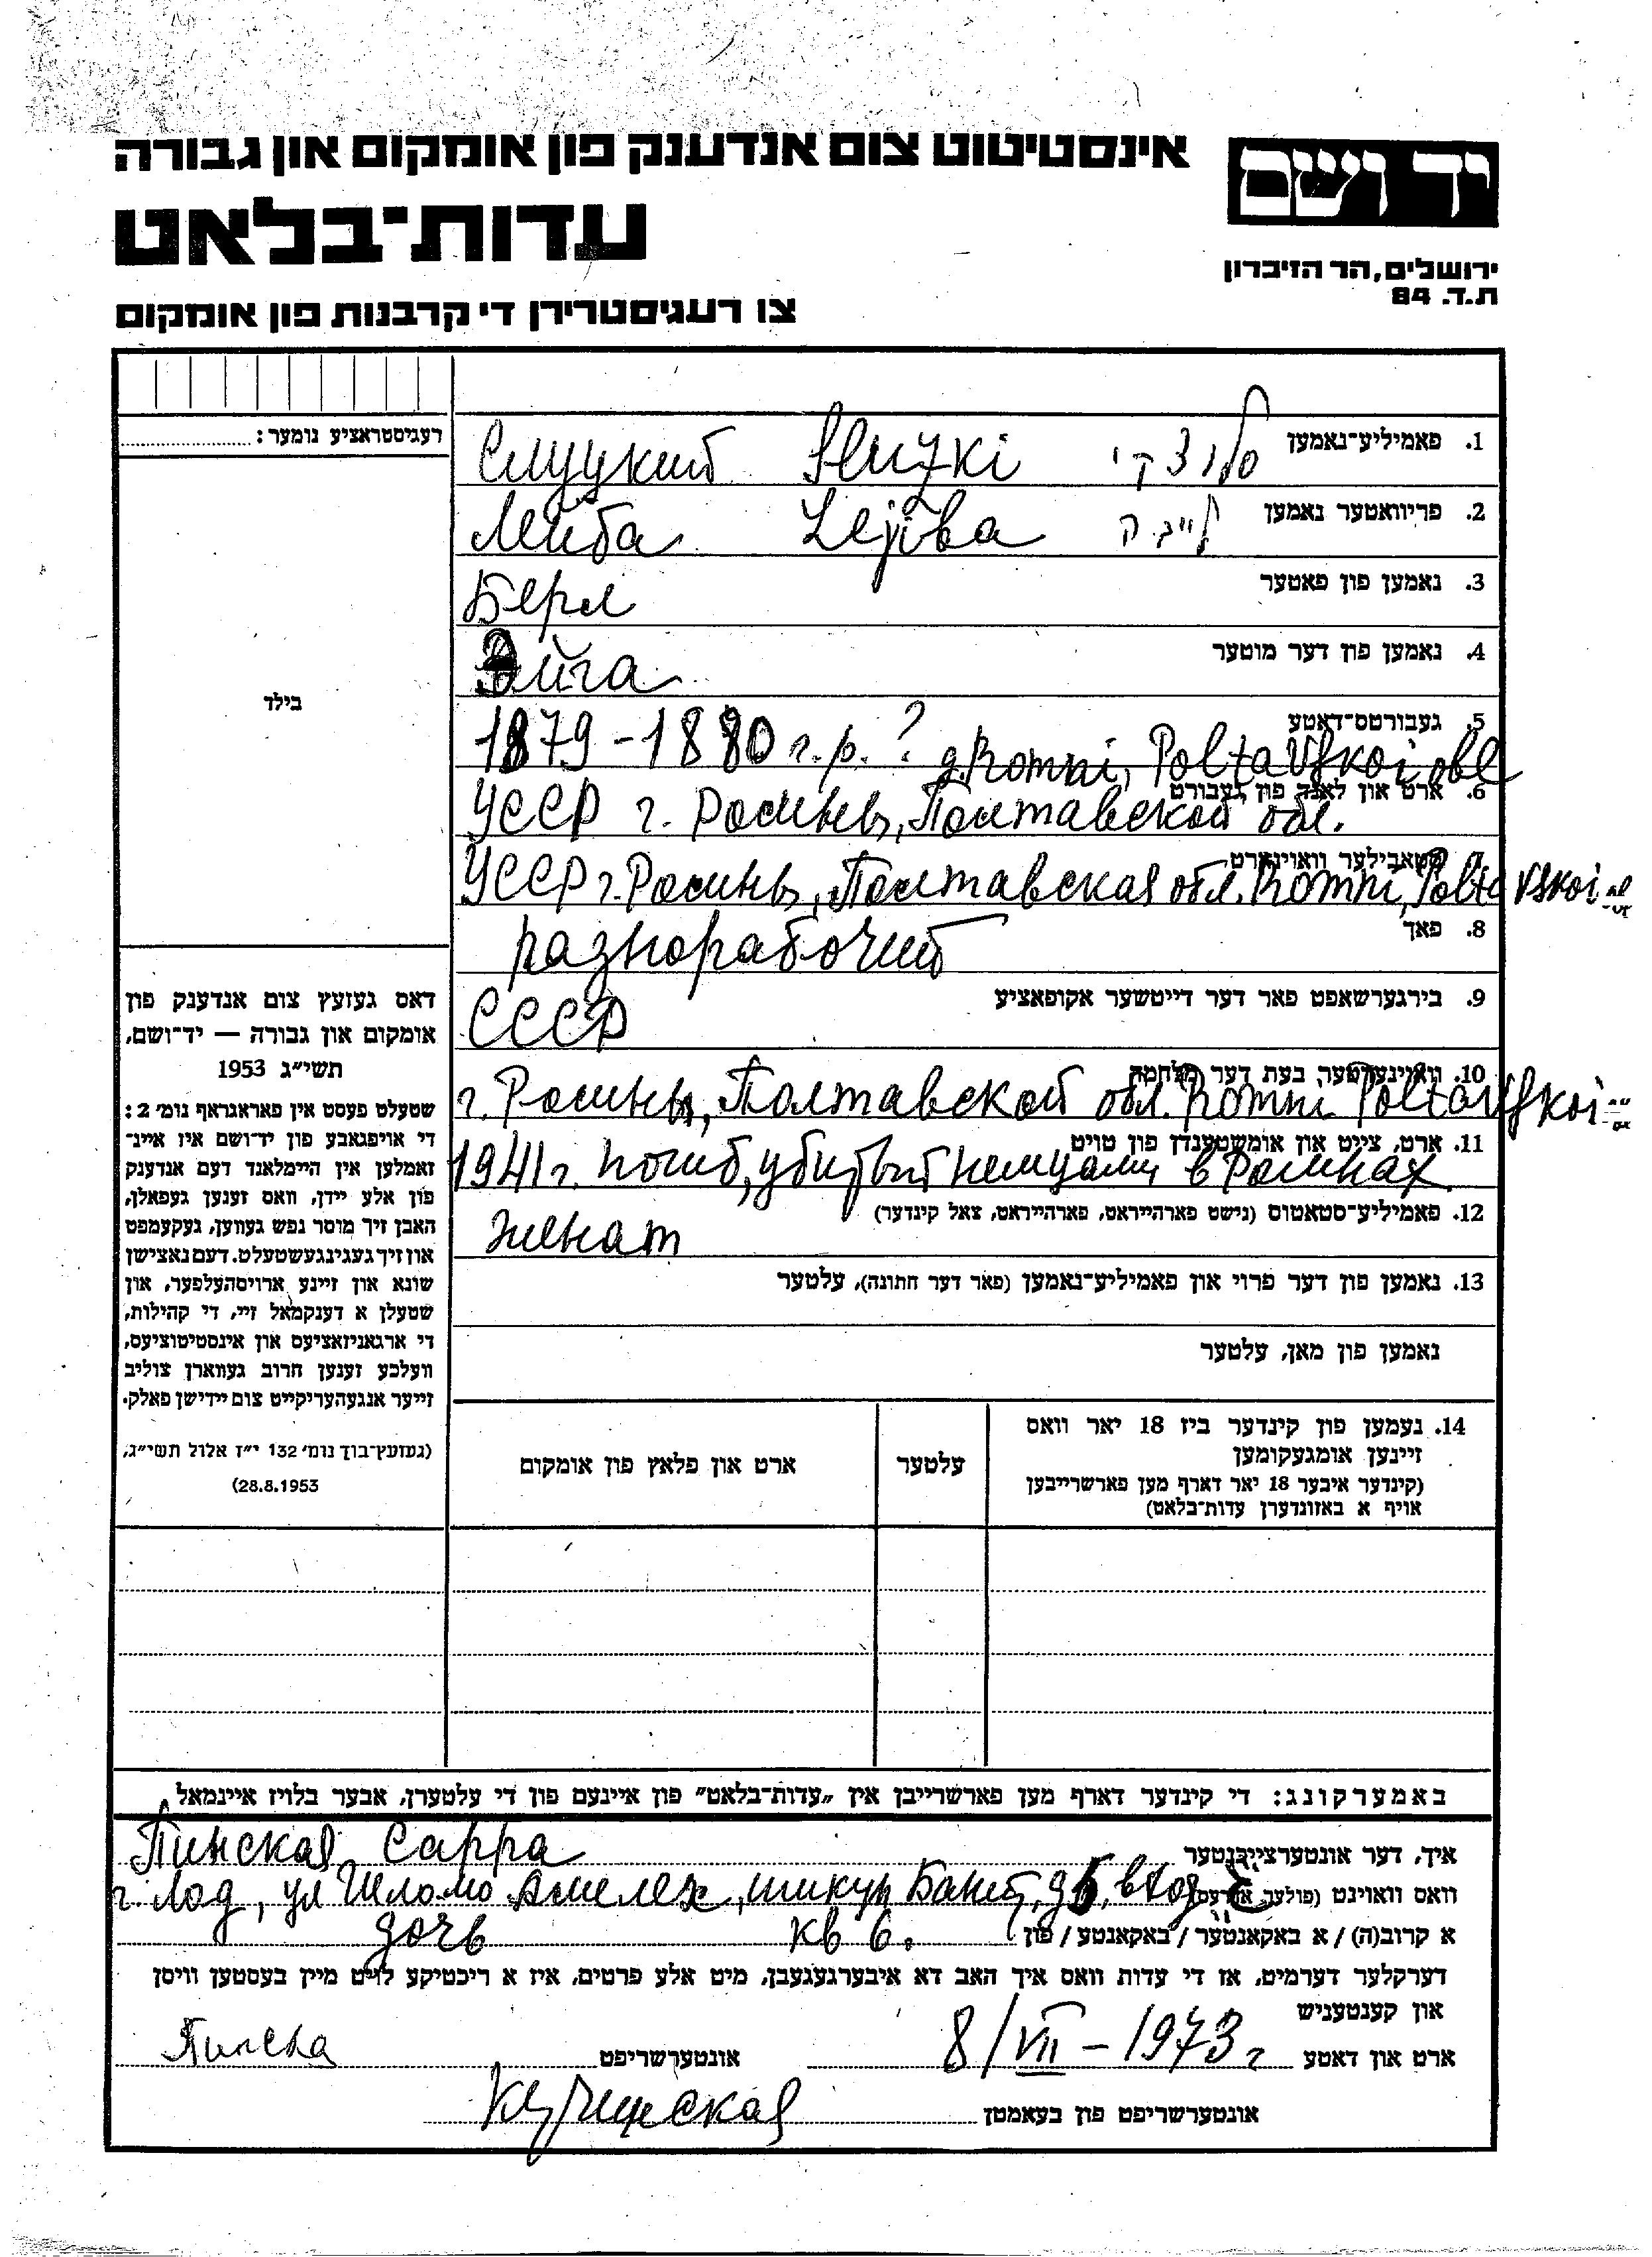 אינסטיטוט צום אנדענק פון אומקום און גבורה
יד ושם
עדות־בלאט
ירושלים, הר הזיכרון
ת.ד. 84
צו רעגיסטרירן די קרבנות פון אומקום
רעגיסטראציע נומער:
בילד
1. פאמיליע־נאמען סלוצקי Sluzki Слуцкий
2. פריוואטער נאמען לייבה Lejba Лейба
3. נאמען פון פאטער Берл
4. נאמען פון דער מוטער Эйга
5. געבורטס־דאטע 1879-1880 г.р. ? g. Romni, Poltavskoi obl
6. ארט און לאנד פון געבורט УССР г. Ромны, Полтавской обл.
7. סטאבילער וואוינארט УССР г. Ромны, Полтавская обл. Romni, Poltavskoi
8. פאך разнорабочий
9. בירגערשאפט פאר דער דייטשער אקופאציע СССР
10. וואוינערטער בעת דער מלחמה г. Ромны, Полтавской обл. Romni Poltavskoi
11. ארט, צייט און אומשטענדן פון טויט 1941 г. погиб, убитый немцами в Ромнах
12. פאמיליע־סטאטוס (נישט פארהייראט, פארהייראט, צאל קינדער) женат
13. נאמען פון דער פרוי און פאמיליע־נאמען (פאר דער חתונה), עלטער
נאמען פון מאן, עלטער
דאס געזעץ צום אנדענק פון
אומקום און גבורה — יד־ושם,
תשי״ג 1953
שטעלט פעסט אין פאראגראף נומ׳ 2:
די אויפגאבע פון יד־ושם איז איינ־
זאמלען אין היימלאנד דעם אנדענק
פון אלע יידן, וואס זענען געפאלן,
האבן זיך מוסר נפש געווען, געקעמפט
און זיך געגינגעשטעלט. דעם נאצישן
שונא און זיינע ארויסהעלפער, און
שטעלן א דענקמאל זיי, די קהילות,
די ארגאניזאציעס און אינסטיטוציעס,
וועלכע זענען חרוב געווארן צוליב
זייער אנגעהעריקייט צום יידישן פאלק.
(געזעץ־בוך נומ׳ 132 י״ז אלול תשי״ג,
28.8.1953)
14. נעמען פון קינדער ביז 18 יאר וואס
זיינען אומגעקומען
(קינדער איבער 18 יאר דארף מען פארשרייבען
אויף א באזונדערן עדות־בלאט)
עלטער
ארט און פלאץ פון אומקום
באמערקונג: די קינדער דארף מען פארשרייבן אין „עדות־בלאט״ פון איינעם פון די עלטערן, אבער בלויז איינמאל
איך, דער אונטערצייכנטער Пинская Сарра
וואס וואוינט (פולער אדרעס) г. Лод, ул Шломо Амелех, шикун Банит, д 5, вход
א קרוב(ה) / א באקאנטער / באקאנטע / פון дочь кв 6.
דערקלער דערמיט, אז די עדות וואס איך האב דא איבערגעגעבן, מיט אלע פרטים, איז א ריכטיקע לויט מיין בעסטען וויסן
און קענטעניש
ארט און דאטע 8/VII-1973 г אונטערשריפט Пинска
אונטערשריפט פון בעאמטן